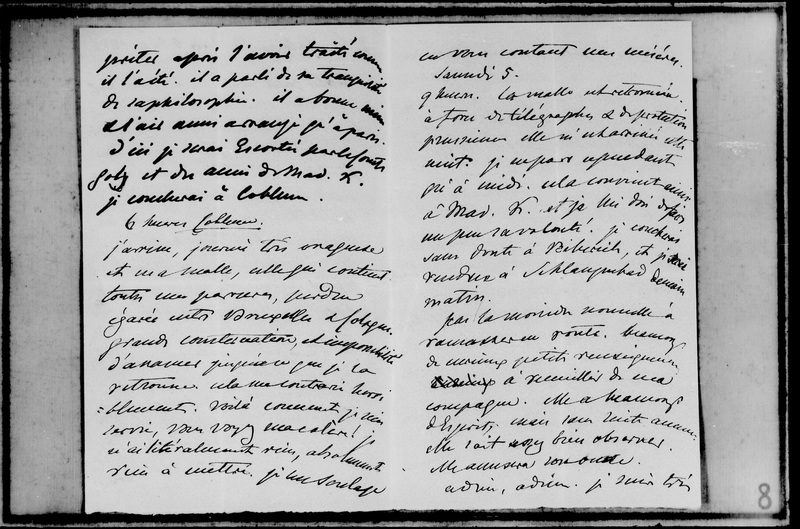 prêter après l'avoir traité comme
il l'a été. il a parlé de sa tranquillité
de sa philosophie. il a bonne mine
& l'air aussi arrangé qu'à paris.
d'ici je serai Escortée par le comte
et un ami de Mad. K.
je coucherai à Coblence.
6 heures Coblence.
j'arrive, journée très orageuse
et ma malle, celle qui contient
toutes mes parures, perdue
égarée entre Bruxelles & Cologne.
grande consternation, et impossibilité
d'avancer jusqu'à ce que je la
retrouve. cela me contrarie horri
=blement. Voilà comment je suis
servie, vous voyez ma colère! je
n'ai littéralement rien, absolument
rien à mettre. je me soulage
en vous contant mes misères.
Samedi 5.
9 heures. La malle est retrouvée.
à force de télégraphes & de protection
prussienne elle m'est arrivée cette
nuit. je ne pars cependant
qu'à midi. cela convient ainsi
à Mad. K. et je lui dois de faire
un peu sa volonté. je coucherai
sans doute à Biberich, et je serai
rendue à Schlangenbad demain
matin.
pas la moindre nouvelle à
ramasser en route. beaucoup
de curieux petits renseignemens
à recueillir de ma
compagne. Elle a beaucoup
d'Esprit, mais sans suite aucune
Elle sait assez bien observer.
Elle amusera son oncle.
adieu, adieu. je suis très
8